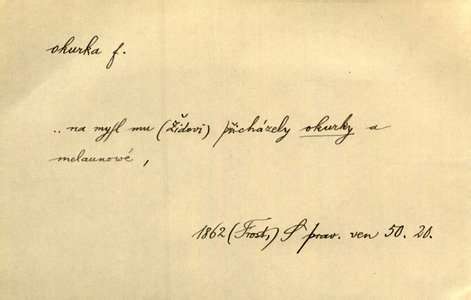 okurka f.
.. na mysl mu (Židovi) přicházely okurky a
melaunowé,
1862 (Frost,) S prav. ven 50. 20.